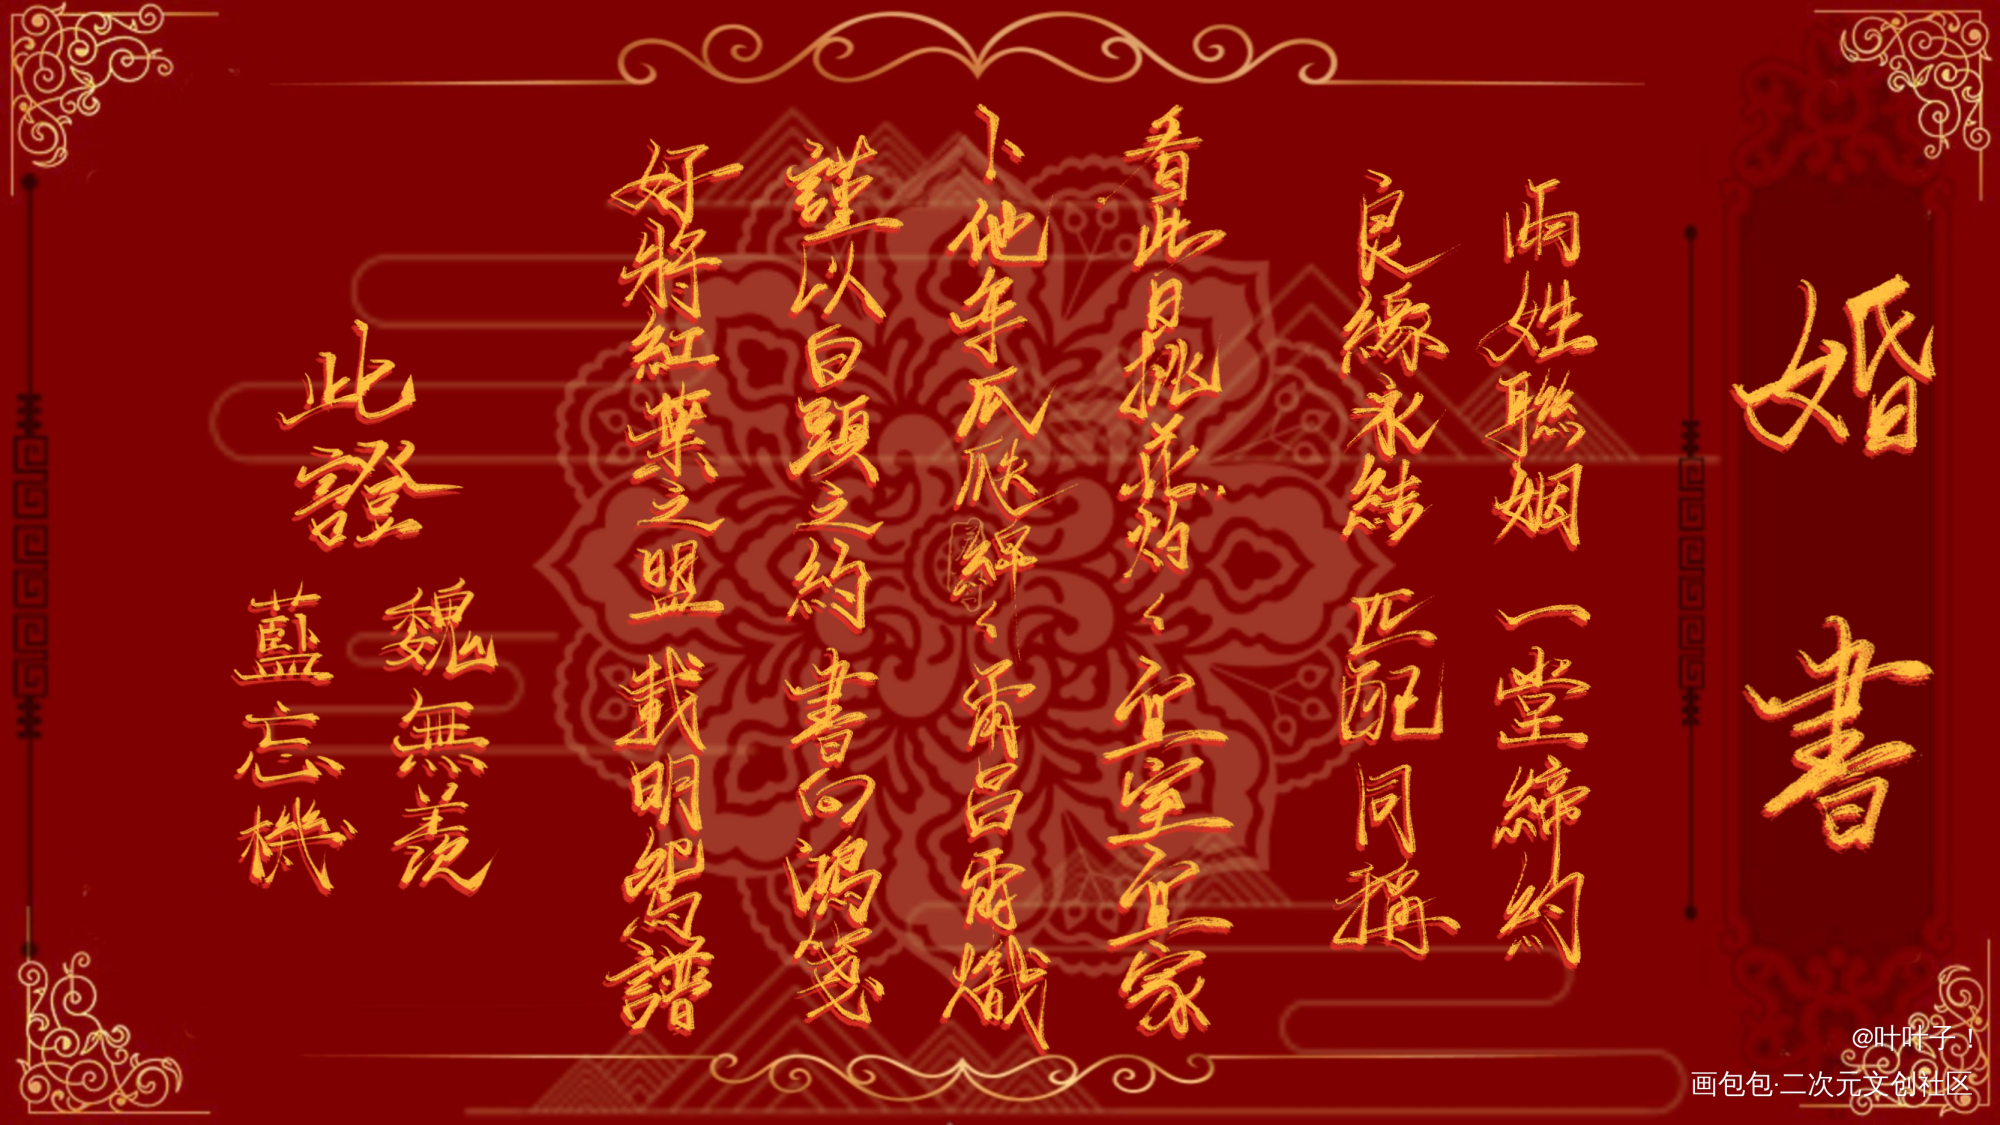 婚書
兩姓聯姻 一堂締約
良緣永結 匹配同稱
看此日桃花灼〻 宜室宜家
卜他年瓜瓞綿〻 爾昌爾熾
謹以白頭之約 書向鴻箋
好將紅葉之盟 載明鴛譜
此證
魏無羨
藍忘機
@叶叶子！
画包包·二次元文创社区